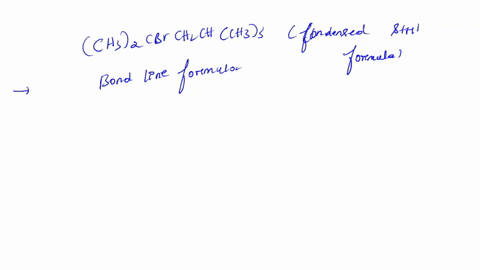 (CH3)2 CBr CH2 CH (CH3)3 (Condensed
formula)
→ Bond line formula